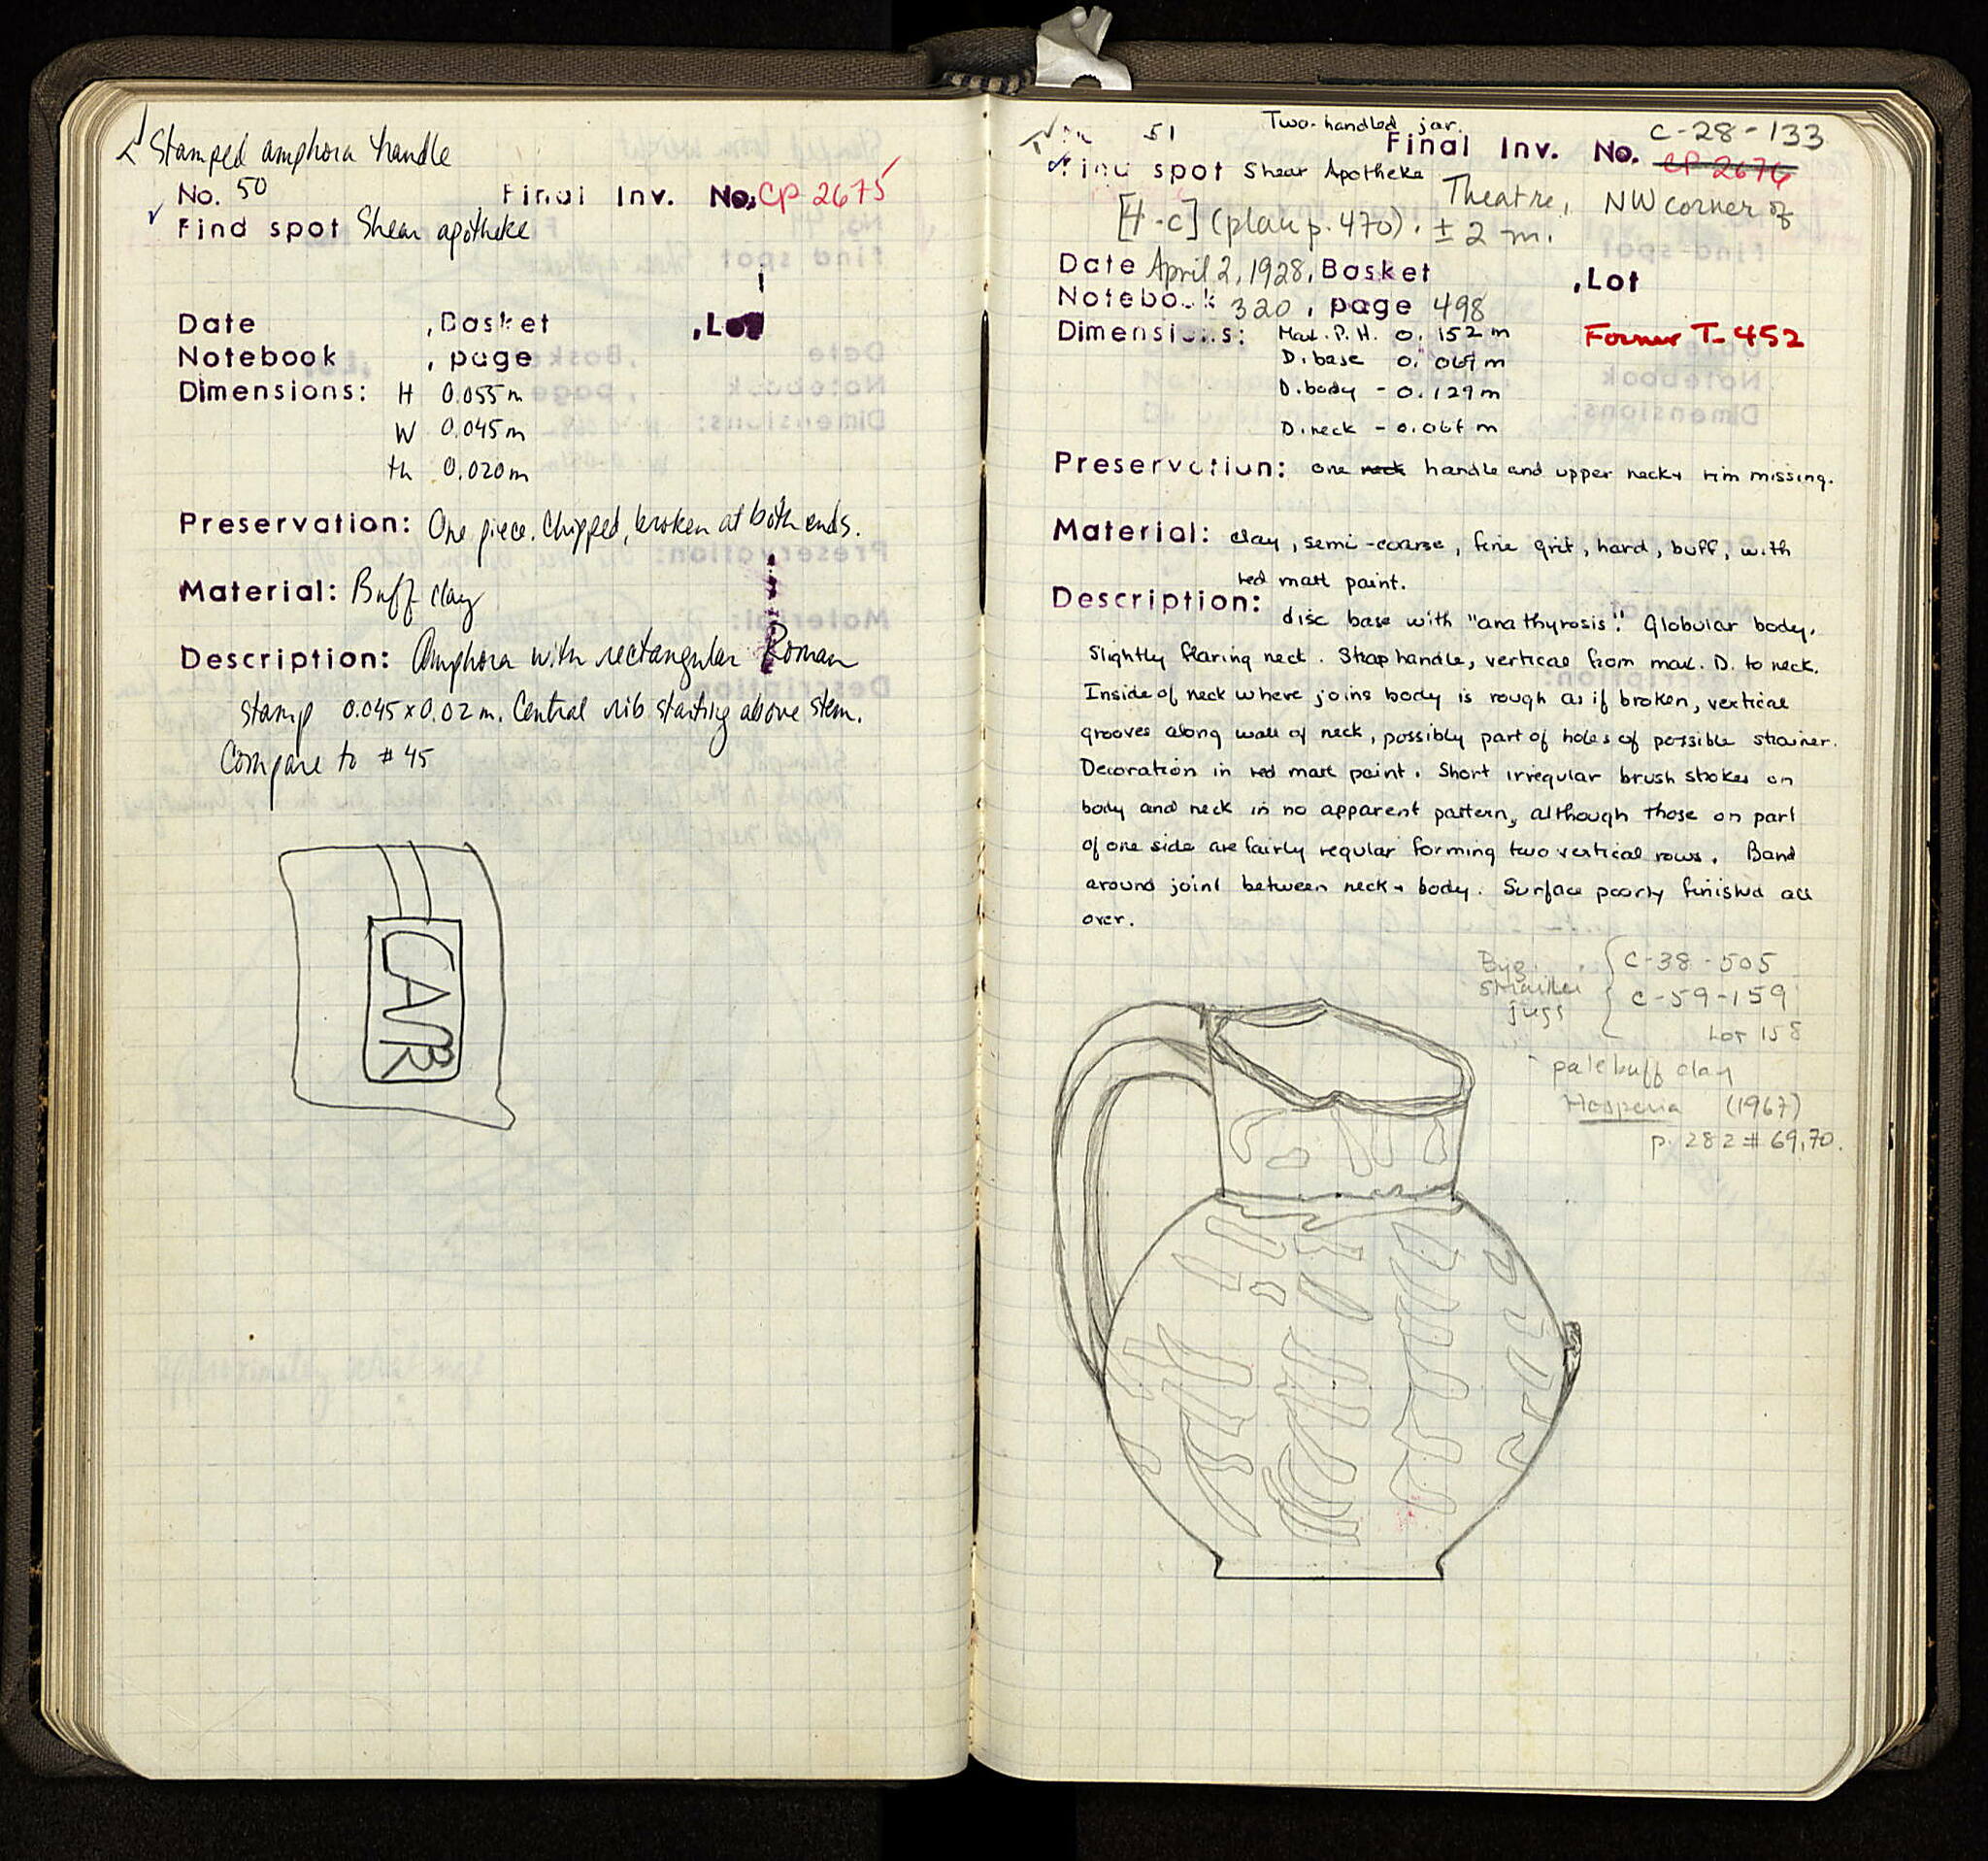 Stamped amphora handle
No. 50 Final Inv. No. CP 2675
Find spot Shear apotheke
Date , Basket , Lot
Notebook , page
Dimensions: H 0.055 m
W 0.045 m
th 0.020 m
Preservation: One piece. Chipped, broken at both ends.
Material: Buff clay
Description: Amphora with rectangular Roman
stamp 0.045 x 0.02 m. Central rib starting above stem.
Compare to # 45
CAR
Two-handled jar.
51 Final Inv. No. C-28-133
CP 2676
Find spot Shear Apotheke
Theatre, NW corner of
(plan p. 470). ± 2 m.
Date April 2, 1928, Basket , Lot
Notebook 320, page 498
Dimensions: Max. P. H. 0.152 m Former T-452
D. base 0.067 m
D. body - 0.129 m
D. neck - 0.067 m
Preservation: one neck handle and upper neck + rim missing.
Material: clay, semi-coarse, fine grit, hard, buff, with
red matt paint.
Description: disc base with "anathyrosis". Globular body.
Slightly flaring neck. Strap handle, vertical from max. D. to neck.
Inside of neck where joins body is rough as if broken, vertical
grooves along wall of neck, possibly part of holes of possible strainer.
Decoration in red matt paint. Short irregular brush strokes on
body and neck in no apparent pattern, although those on part
of one side are fairly regular forming two vertical rows. Band
around joint between neck + body. Surface poorly finished all
over.
C-38-505
C-59-159
jugs
Lot 158
pale buff clay
Hesperia (1967)
p. 282 # 69, 70.